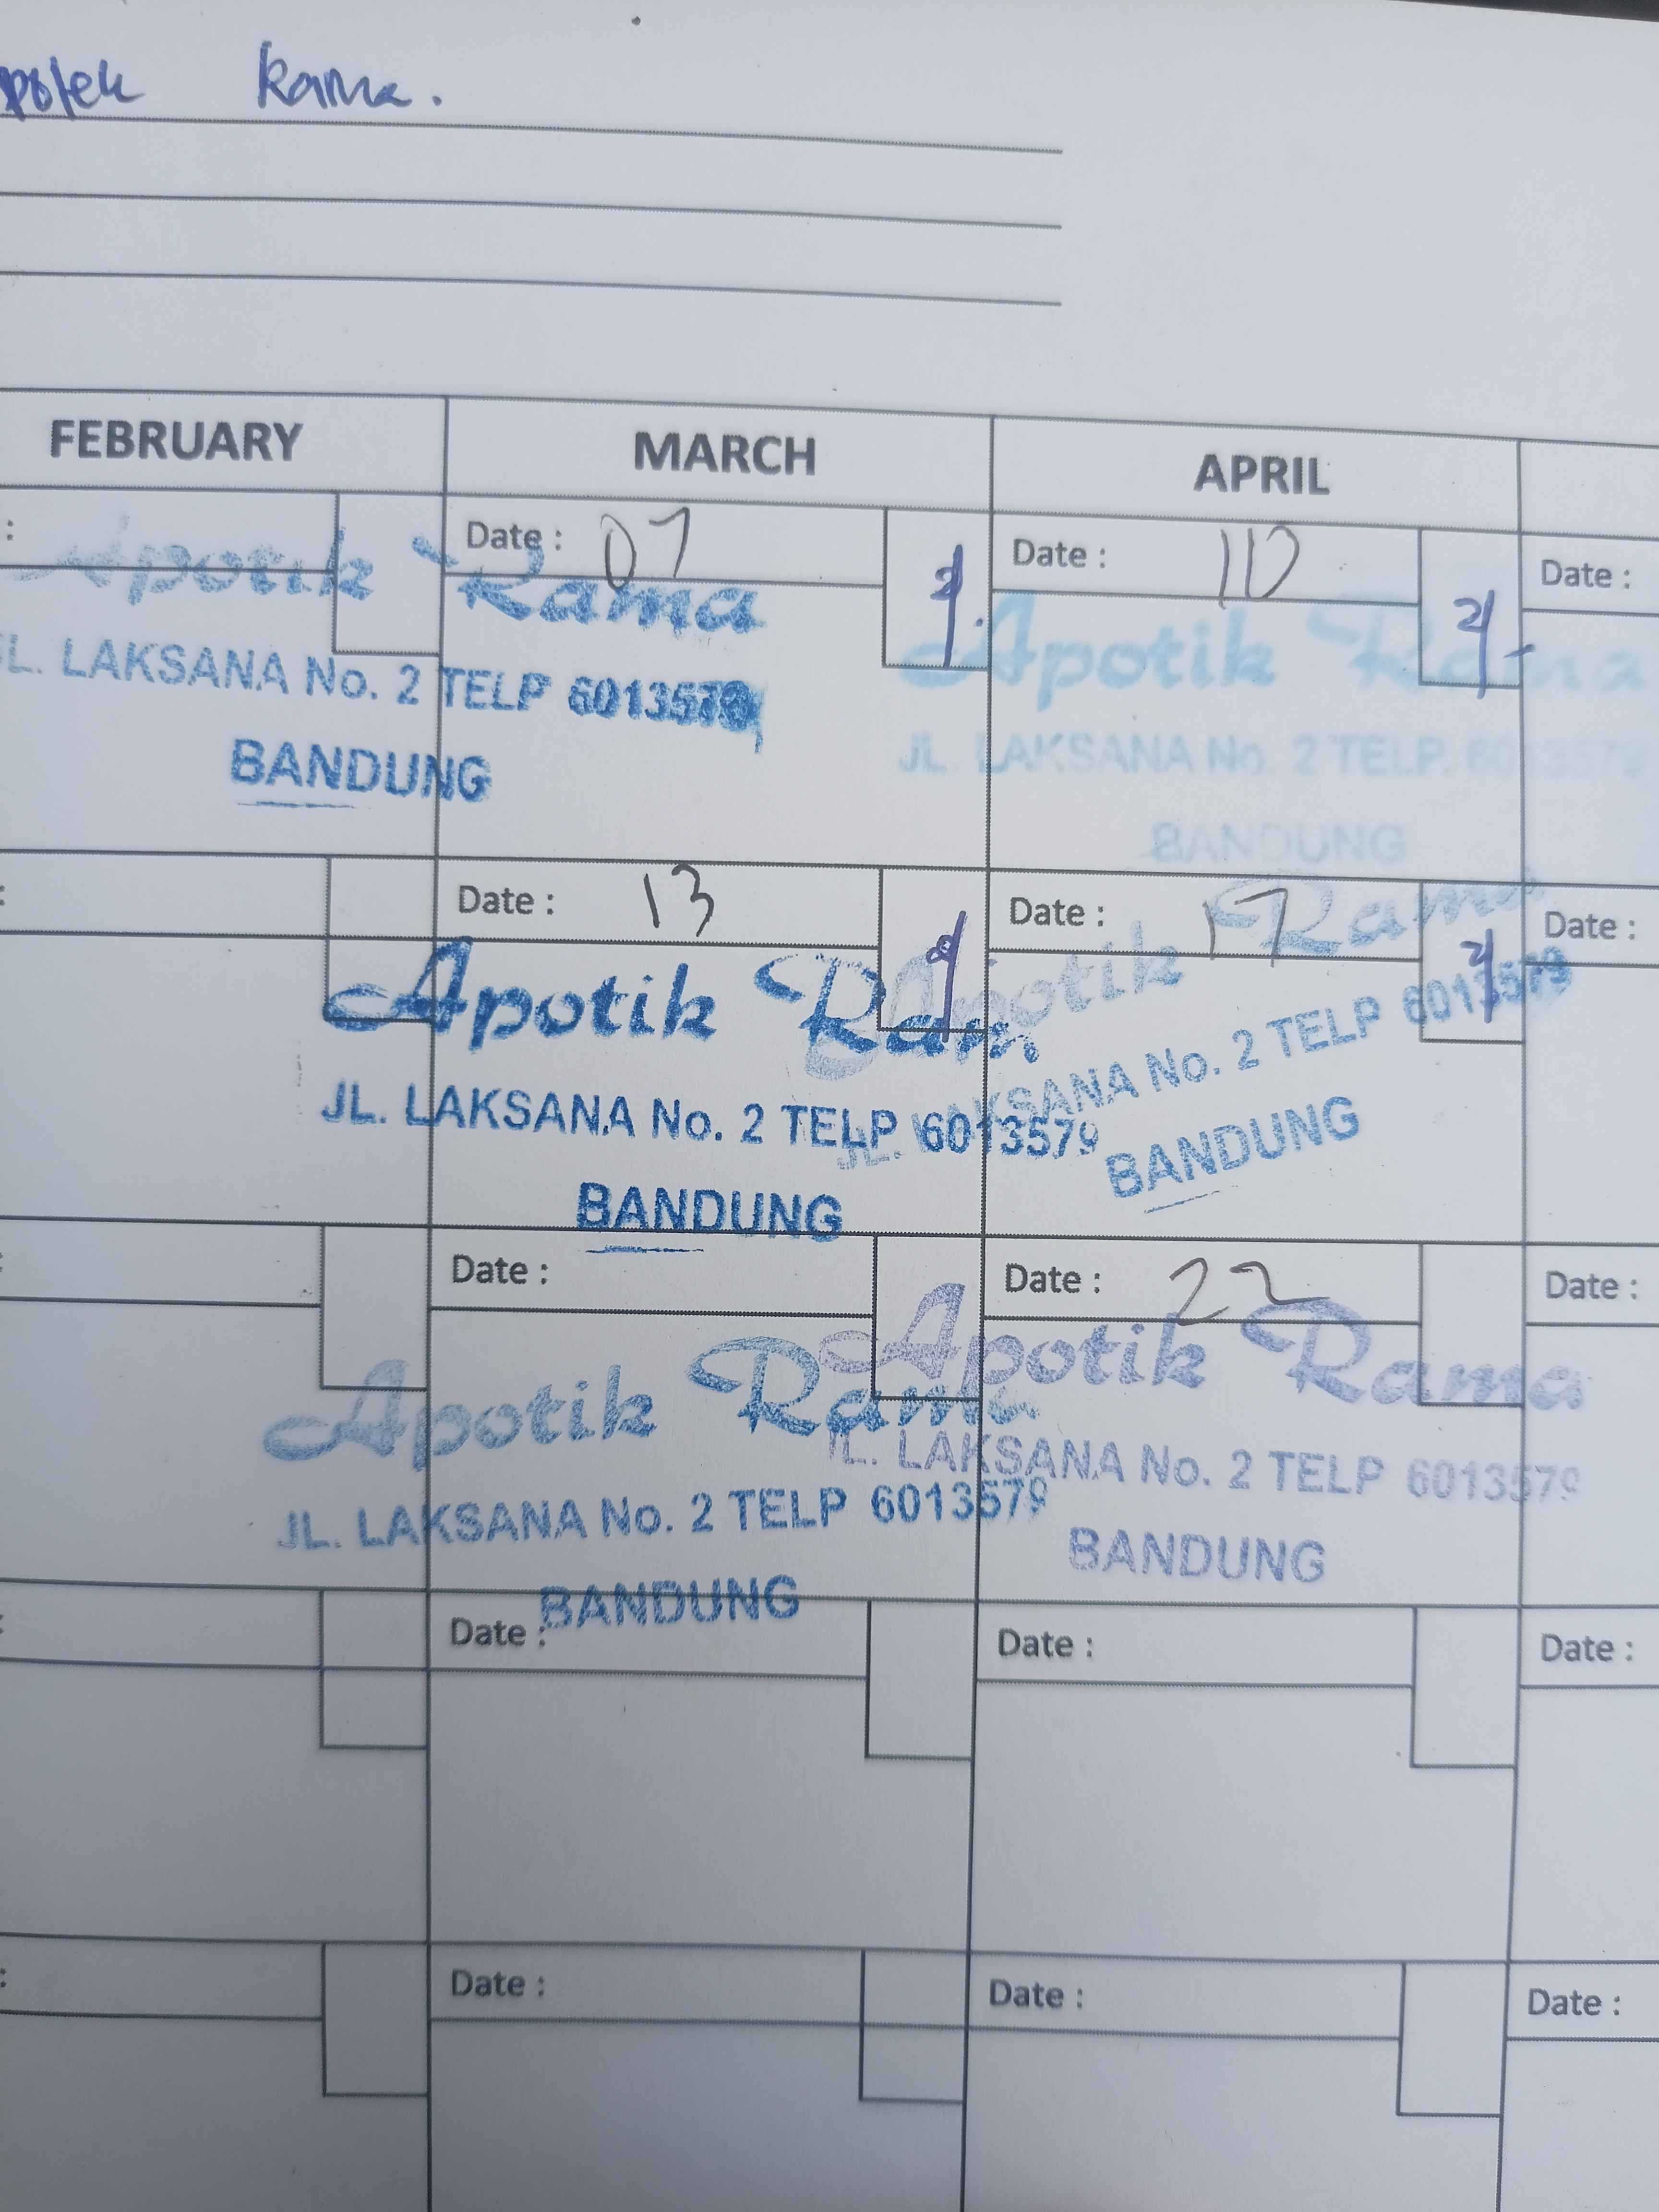 Apotek Rama.
FEBRUARY MARCH APRIL
: Date : 07 Date : 10 Date :
Apotik Rama
JL. LAKSANA No. 2 TELP 6013579
BANDUNG
Apotik Rama
JL. LAKSANA No. 2 TELP. 6013579
BANDUNG
: Date : 13 Date : 17 Date :
Apotik Ram
JL. LAKSANA No. 2 TELP 6013579
BANDUNG
Apotik Rama
JL. LAKSANA No. 2 TELP 6013579
BANDUNG
: Date : Date : 22 Date :
Apotik Rama
JL. LAKSANA No. 2 TELP 6013579
BANDUNG
Apotik Rama
JL. LAKSANA No. 2 TELP 6013579
BANDUNG
: Date : Date : Date :
: Date : Date : Date :